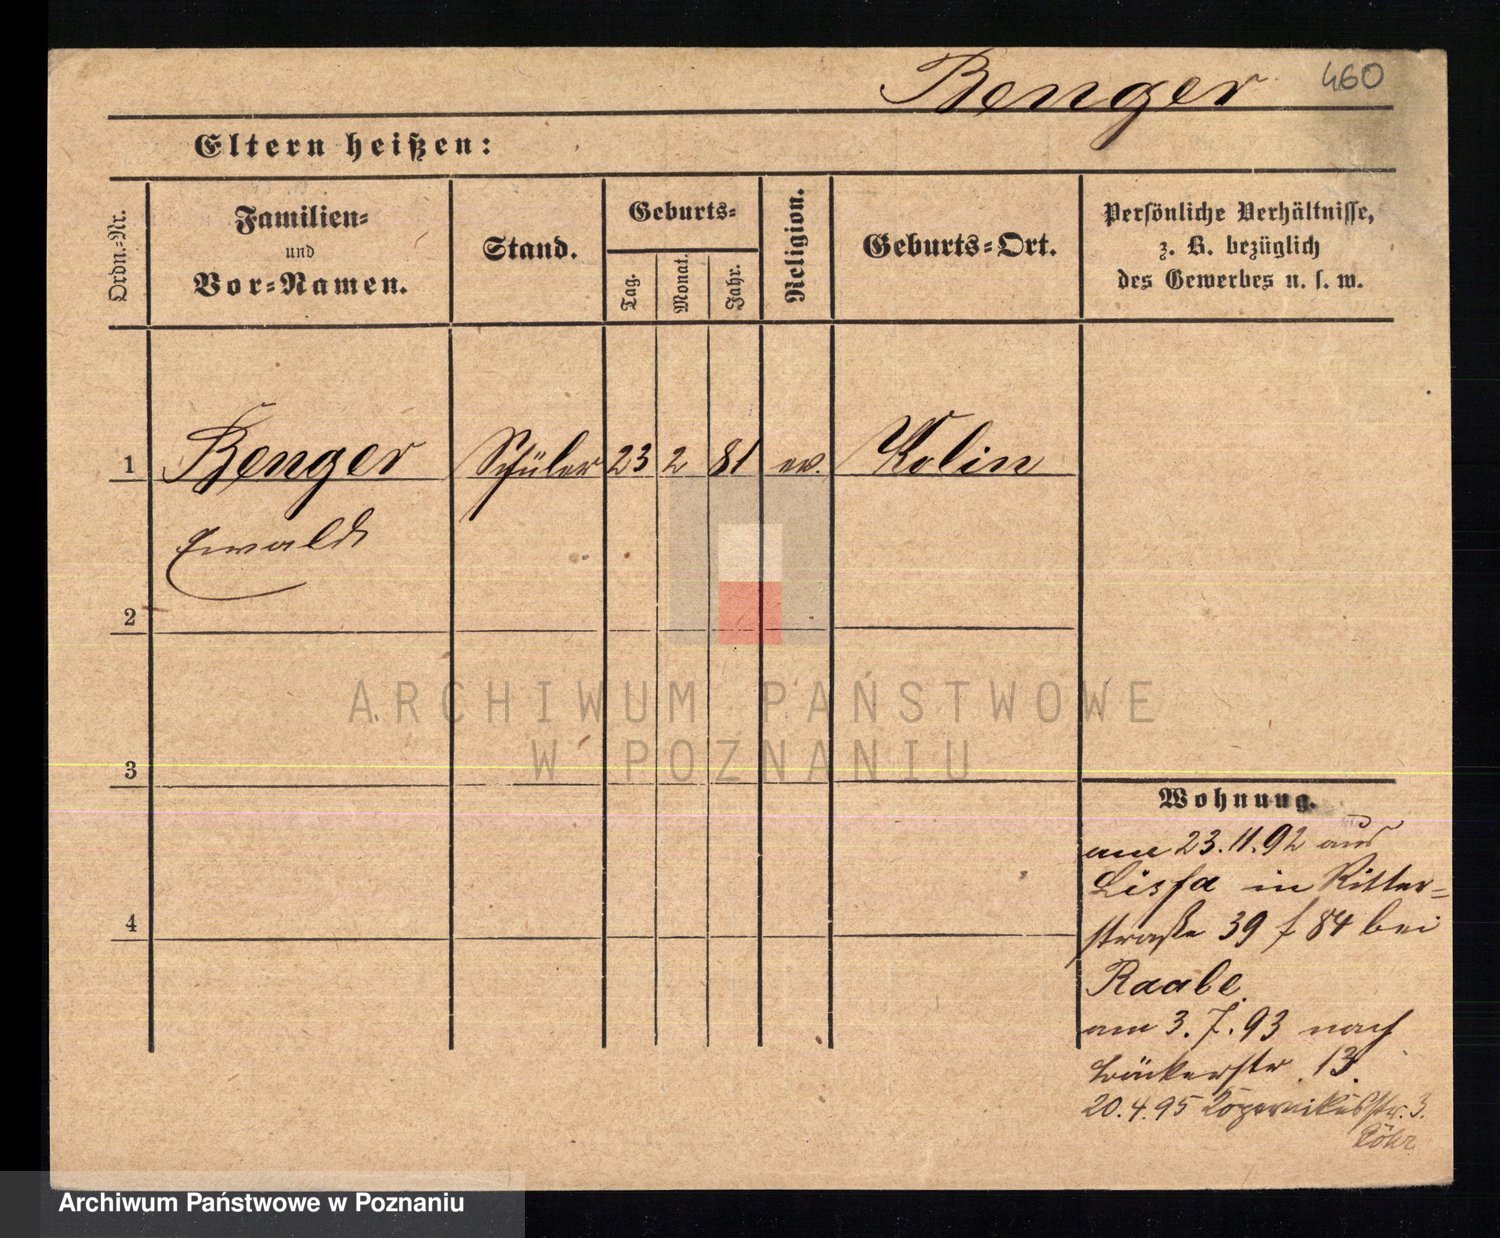 Benger 460
Eltern heißen:
Ordn.-Nr.
Familien-
und
Vor-Namen.
Stand.
Geburts-
Tag.
Monat.
Jahr.
Religion.
Geburts-Ort.
Persönliche Verhältnisse,
z. B. bezüglich
des Gewerbes u. s. w.
1 Benger Schüler 23 2 81 ev. Kolin
Ewald
2
3
4
Wohnung.
am 23.11.92 aus
Lissa in Ritter-
straße 39 f 84 bei
Raabe
am 3.7.93 nach
Bäckerstr. 13.
20.4.95 Kopernikusstr. 3.
ARCHIWUM PAŃSTWOWE
W POZNANIU
Archiwum Państwowe w Poznaniu